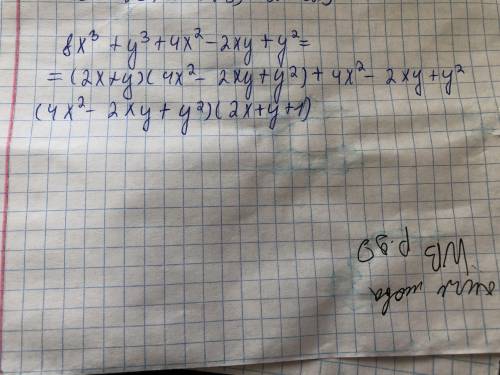 8x³ + y³ + 4x² - 2xy + y² =
= (2x+y)(4x² - 2xy + y²) + 4x² - 2xy + y²
(4x² - 2xy + y²)(2x + y + 1)
мова
WB p.